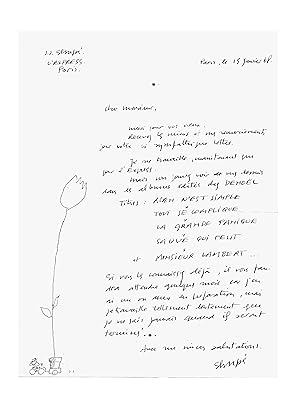 J.J. Sempé.
L'EXPRESS
Paris.
Paris, le 15 janvier 68
cher monsieur,
merci pour vos vœux.
Recevez les miens et mes remerciements
pour votre si sympathique lettre.
Je ne travaille, maintenant que
pour l'Express.
mais vous pouvez voir de mes dessins
dans les albums édités chez DENOEL
Titres : RIEN N'EST SIMPLE
TOUT SE COMPLIQUE
LA GRANDE PANIQUE
SAUVE QUI PEUT
et MONSIEUR LAMBERT...
Si vous les connaissez déjà, il vous fau-
dra attendre quelques mois car j'en
ai un ou deux en préparation, mais
je travaille tellement lentement que
je ne sais jamais quand ils seront
terminés...
Avec mes sincères salutations.
Sempé